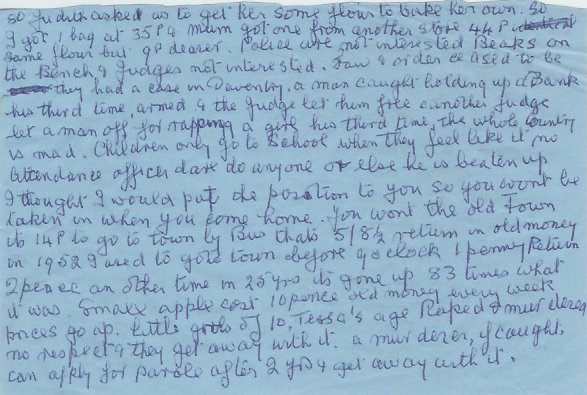 so Judith asked us to get her some flour to bake her own. So
I got 1 bag at 35P & mum got one from another store 44P
same flour but 9P dearer. Police are not interested Beaks on
the Bench, & Judges not interested. Law & order ceased to be
they had a case in Daventry, a man caught holding up a Bank
his third time, armed & the Judge let him free another Judge
let a man off for rapping a girl his third time, the whole country
is mad. Children only go to School when they feel like it no
attendance officer dare do anyone or else he is beaten up
I thought I would put the position to you so you wont be
taken in when you come home. you wont the old Town
its 14P to go to town by Bus thats 5/8½ return in old money
in 1952 I used to go to town before 9 oclock 1 penny Return
2 pence an other time in 25 yrs its gone up 83 times what
it was. Small apple cost 10 pence old money every week
prices go up. little girls of 10, Tessa's age Raped & murdered
no respect & they get away with it. a murderer, if caught,
can apply for parole after 2 yrs & get away with it.